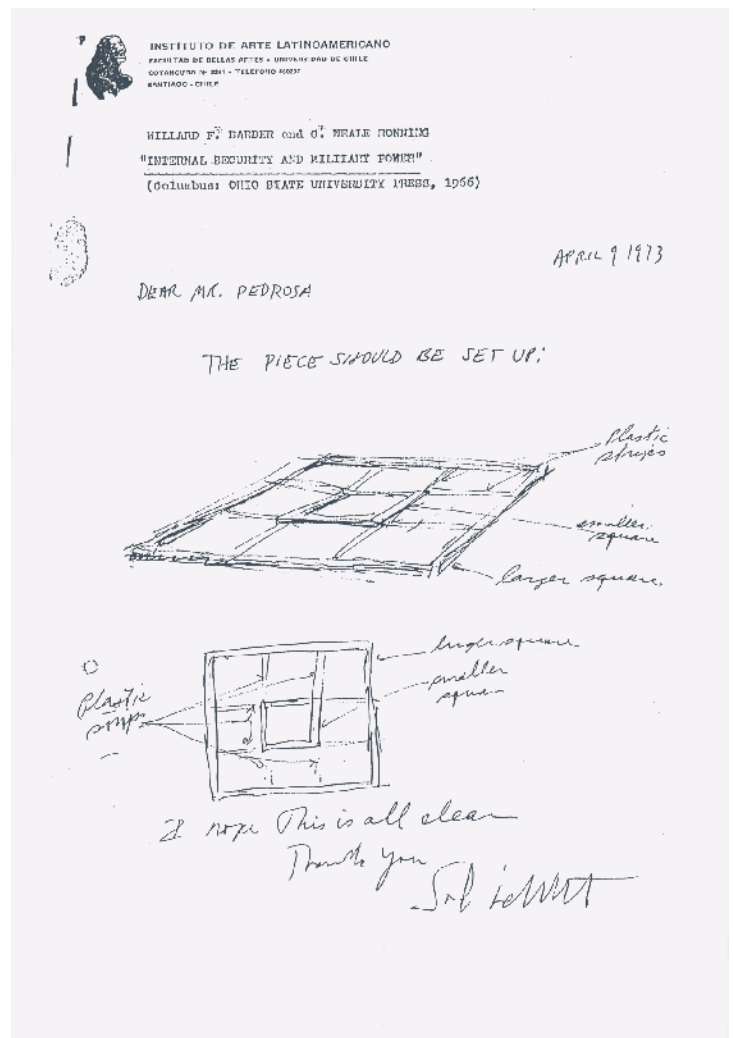 INSTITUTO DE ARTE LATINOAMERICANO
FACULTAD DE BELLAS ARTES - UNIVERSIDAD DE CHILE
TELEFONO
SANTIAGO - CHILE
WILLARD F. BARBER and C. NEALE RONNING
"INTERNAL SECURITY AND MILITARY POWER"
(Columbus: OHIO STATE UNIVERSITY PRESS, 1966)
APRIL 9 1973
DEAR MR. PEDROSA
THE PIECE SHOULD BE SET UP:
Plastic
strips
smaller
square
larger square
larger square
smaller
square
Plastic
strips
I hope This is all clear
Thank you
Sol LeWitt